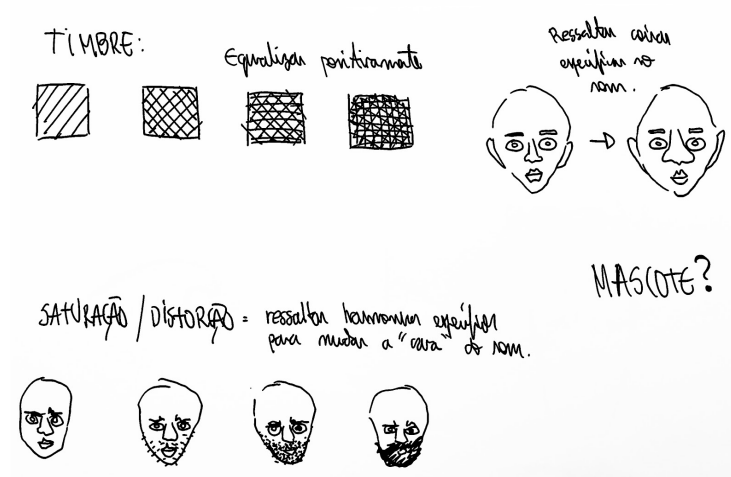 TIMBRE:
Equalizar positivamente
Ressaltar coisas
específicas no
som.
MASCOTE?
SATURAÇÃO / DISTORÇÃO = ressaltar harmonicos específicos
para mudar a "cara" do som.